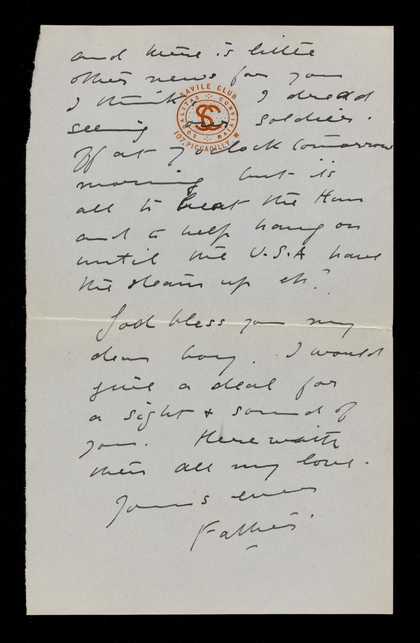 and there is little
other news for you
I think. I dread
SAVILE CLUB
SODALITAS CONVIVIUM
107, PICCADILLY. W.
seeing soldier.
Off at 7 o'clock tomorrow
morning but it is
all to beat the Hun
and to help hang on
until the U.S.A have
the steam up eh?
God bless you my
dear boy. I would
give a deal for
a sight & sound of
you. Herewith
then all my love.
Yours ever
Father.